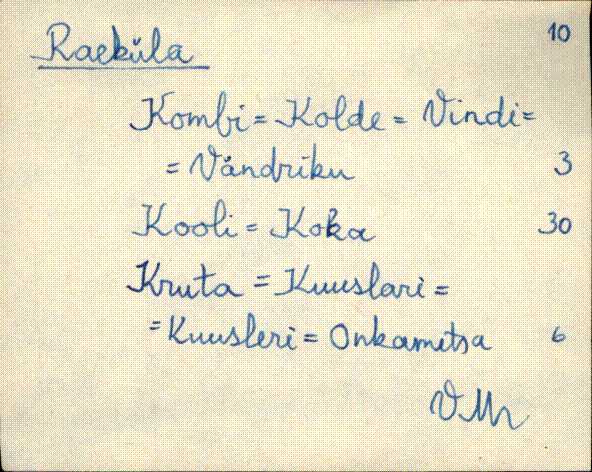 Raeküla 10
Kombi = Kolde = Vindi =
= Vändriku 3
Kooli = Koka 30
Kruta = Kuuslari =
= Kuusleri = Onkametsa 6
VM